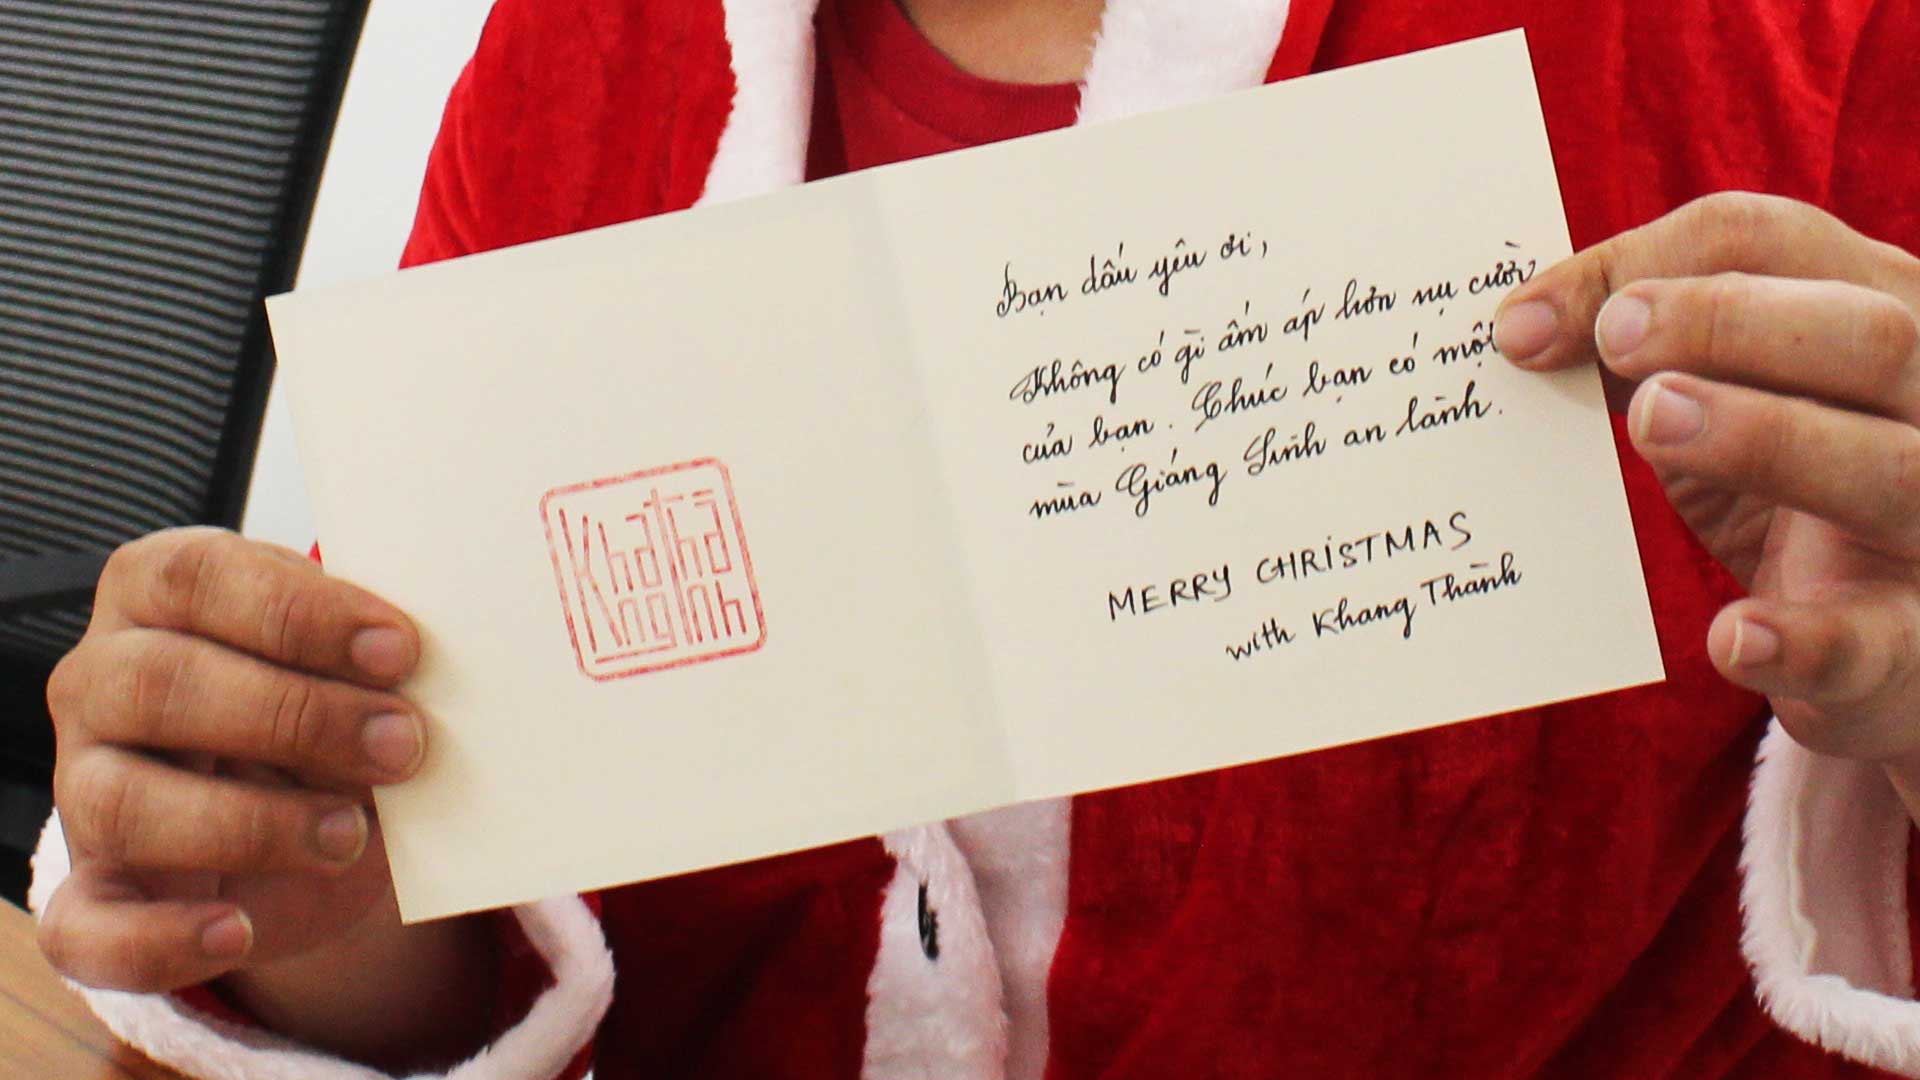 Khang Thành
Bạn dấu yêu ơi,
Không có gì ấm áp hơn nụ cười
của bạn. Chúc bạn có một
mùa Giáng Sinh an lành.
MERRY CHRISTMAS
with Khang Thành